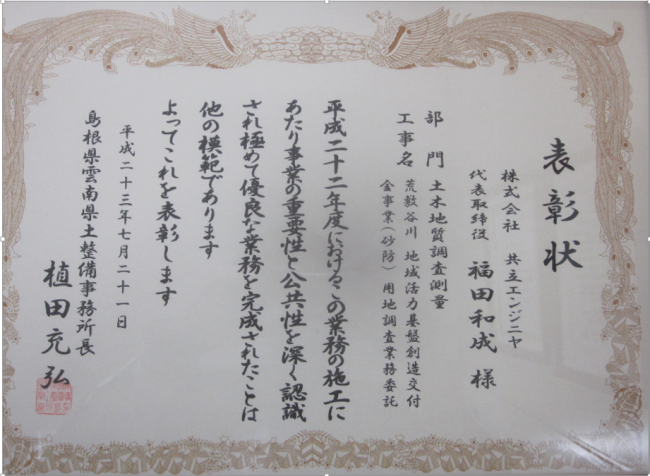 表彰状
株式会社 共立エンジニヤ
代表取締役 福田和成 様
部門 土木地質調査測量
工事名 荒敷谷川 地域活力基盤創造交付
金事業(砂防)用地調査業務委託
平成二十二年度におけるこの業務の施工に
あたり事業の重要性と公共性を深く認識
され極めて優良な業務を完成されたことは
他の模範であります
よってこれを表彰します
平成二十三年七月二十一日
島根県雲南県土整備事務所長
植田充弘